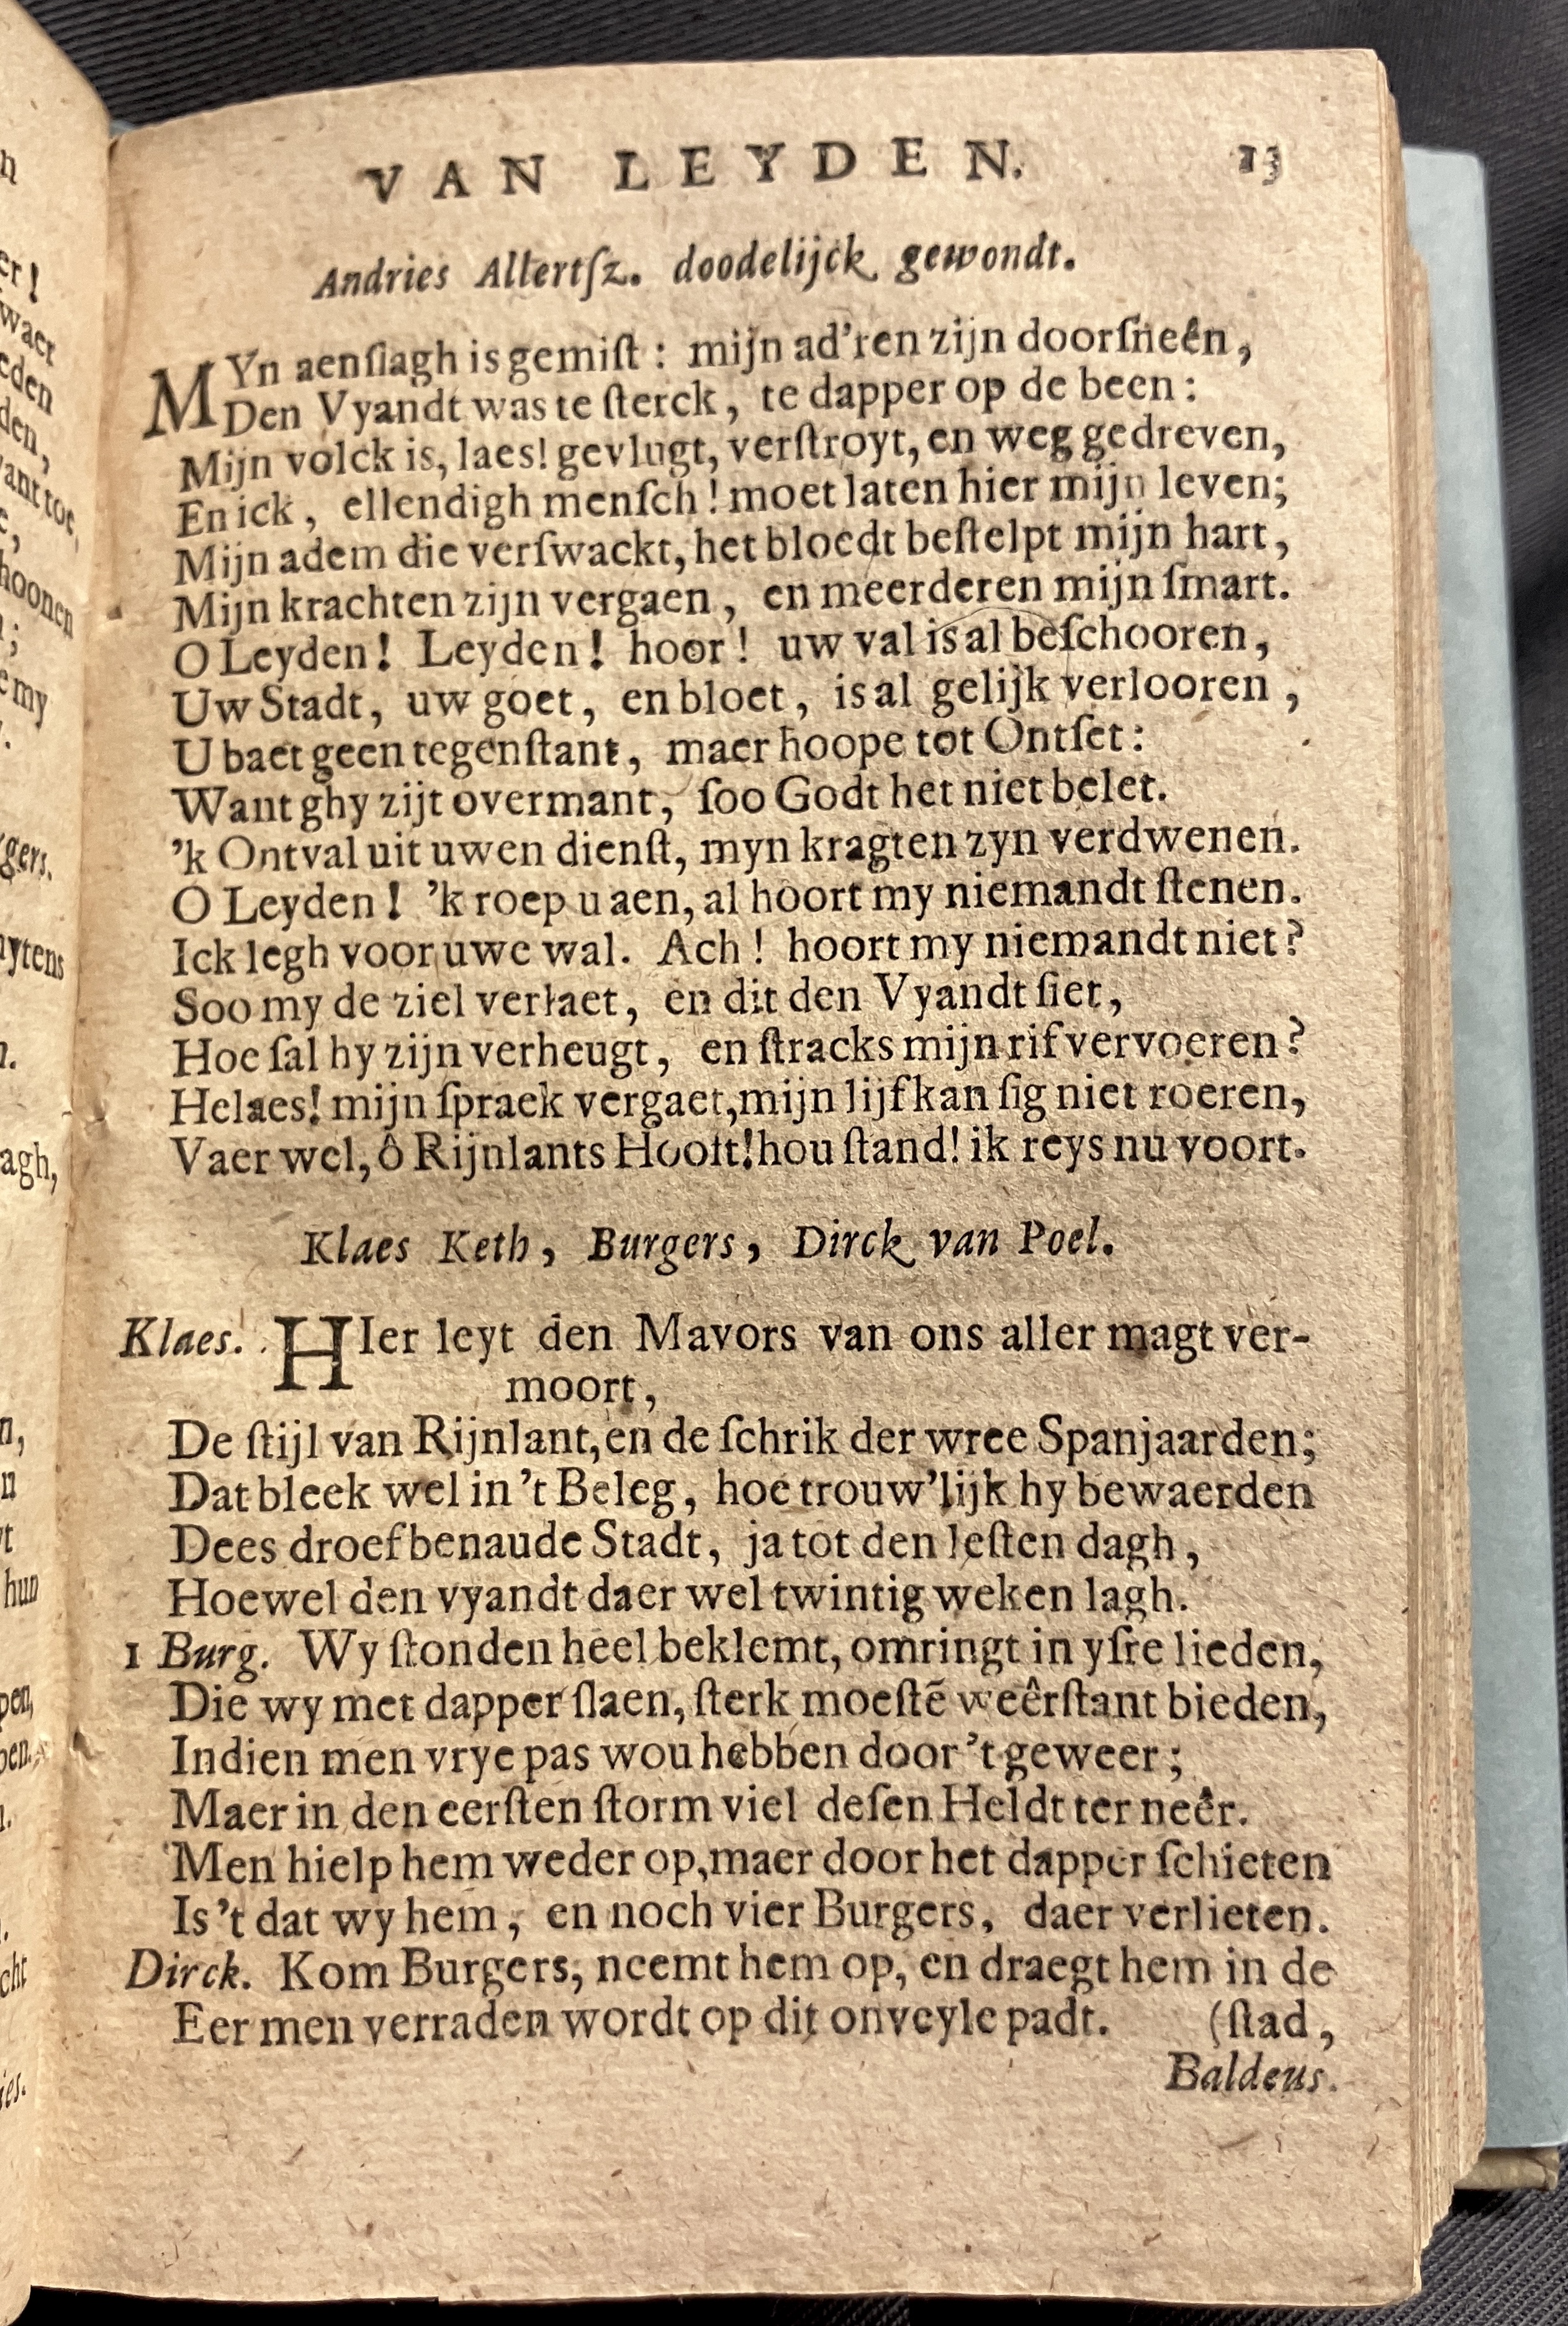 VAN LEYDEN. 13
Andries Allertſz. doodelijck gewondt.
MYn aenſlagh is gemiſt : mijn ad'ren zijn doorſneên,
Den Vyandt was te ſterck, te dapper op de been :
Mijn volck is, laes! gevlugt, verſtroyt, en weg gedreven,
En ick, ellendigh menſch! moet laten hier mijn leven;
Mijn adem die verſwackt, het bloedt beſtelpt mijn hart,
Mijn krachten zijn vergaen, en meerderen mijn ſmart.
O Leyden! Leyden! hoor! uw val is al beſchooren,
Uw Stadt, uw goet, en bloet, is al gelijk verlooren,
U baet geen tegenſtant, maer hoope tot Ontſet:
Want ghy zijt overmant, ſoo Godt het niet belet.
'k Ontval uit uwen dienſt, myn kragten zyn verdwenen.
O Leyden! 'k roep u aen, al hoort my niemandt ſtenen.
Ick legh voor uwe wal. Ach! hoort my niemandt niet?
Soo my de ziel verlaet, en dit den Vyandt ſiet,
Hoe ſal hy zijn verheugt, en ſtracks mijn rif vervoeren?
Helaes! mijn ſpraek vergaet, mijn lijf kan ſig niet roeren,
Vaer wel, ô Rijnlants Hooft! hou ſtand! ik reys nu voort.
Klaes Keth, Burgers, Dirck van Poel.
Klaes. HIer leyt den Mavors van ons aller magt ver-
moort,
De ſtijl van Rijnlant, en de ſchrik der wree Spanjaarden;
Dat bleek wel in 't Beleg, hoe trouw'lijk hy bewaerden
Dees droef benaude Stadt, ja tot den leſten dagh,
Hoewel den vyandt daer wel twintig weken lagh.
1 Burg. Wy ſtonden heel beklemt, omringt in yſre lieden,
Die wy met dapper ſlaen, ſterk moeſtē weêrſtant bieden,
Indien men vrye pas wou hebben door 't geweer;
Maer in den eerſten ſtorm viel deſen Heldt ter neêr.
Men hielp hem weder op, maer door het dapper ſchieten
Is 't dat wy hem, en noch vier Burgers, daer verlieten.
Dirck. Kom Burgers, neemt hem op, en draegt hem in de
Eer men verraden wordt op dit onveyle padt. (ſtad,
Baldeus.